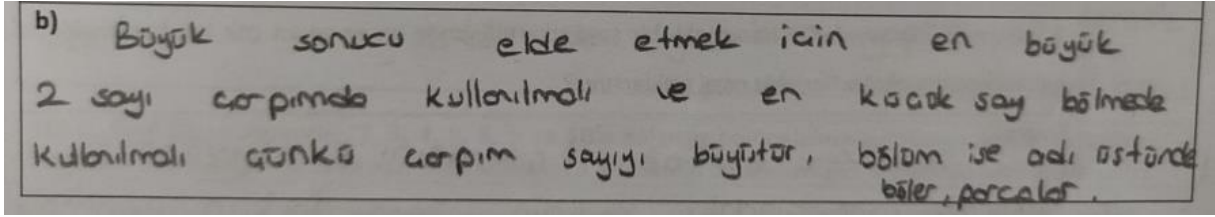 b) Büyük sonucu elde etmek için en büyük
2 sayı çarpımda kullanılmalı ve en küçük say bölmede
kullanılmalı çünkü çarpım sayıyı büyütür, bölüm ise adı üstünde
böler, parçalar.